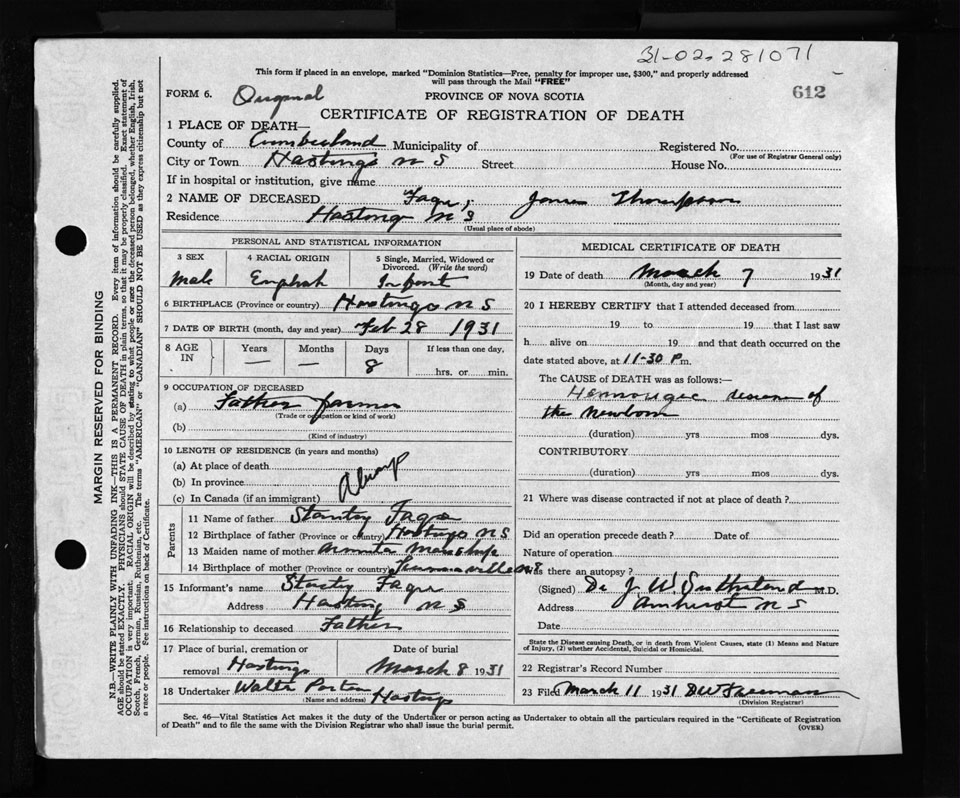 31-02-281071
This form if placed in an envelope, marked "Dominion Statistics—Free, penalty for improper use, $300," and properly addressed
will pass through the Mail "FREE"
612
FORM 6. Original
PROVINCE OF NOVA SCOTIA
CERTIFICATE OF REGISTRATION OF DEATH
1 PLACE OF DEATH—
County of Cumberland Municipality of Registered No.
(For use of Registrar General only)
City or Town Hastings N S Street House No.
If in hospital or institution, give name
2 NAME OF DECEASED James Thompson
Residence Hastings N S
(Usual place of abode)
PERSONAL AND STATISTICAL INFORMATION
3 SEX 4 RACIAL ORIGIN 5 Single, Married, Widowed or
Divorced. (Write the word)
Male English Infant
6 BIRTHPLACE (Province or country) Hastings N S
7 DATE OF BIRTH (month, day and year) Feb 28 1931
8 AGE IN Years Months Days If less than one day,
— — 8 hrs. or min.
9 OCCUPATION OF DECEASED
(a) Father farmer
(Trade or occupation or kind of work)
(b)
(Kind of industry)
10 LENGTH OF RESIDENCE (in years and months)
(a) At place of death
(b) In province Always
(c) In Canada (if an immigrant)
Parents
11 Name of father
12 Birthplace of father (Province or country) Hastings N S
13 Maiden name of mother
14 Birthplace of mother (Province or country) N S
15 Informant's name
Address Hastings N S
16 Relationship to deceased Father
17 Place of burial, cremation or Date of burial
removal Hastings March 8 1931
18 Undertaker Walter Porter Hastings
(Name and address)
MEDICAL CERTIFICATE OF DEATH
19 Date of death March 7 1931
(Month, day and year)
20 I HEREBY CERTIFY that I attended deceased from
19 to 19 that I last saw
h alive on 19 and that death occurred on the
date stated above, at 11-30 P m.
The CAUSE of DEATH was as follows:—
disease of
the newborn
(duration) yrs mos dys.
CONTRIBUTORY
(duration) yrs mos dys.
21 Where was disease contracted if not at place of death?
Did an operation precede death? Date of
Nature of operation
Was there an autopsy?
(Signed) Dr J. W. Sutherland M.D.
Address Amherst N S
Date
State the Disease causing Death, or in death from Violent Causes, state (1) Means and Nature
of Injury, (2) whether Accidental, Suicidal or Homicidal.
22 Registrar's Record Number
23 Filed March 11 1931 D W Freeman
(Division Registrar)
Sec. 46—Vital Statistics Act makes it the duty of the Undertaker or person acting as Undertaker to obtain all the particulars required in the "Certificate of Registration
of Death" and to file the same with the Division Registrar who shall issue the burial permit.
(OVER)
MARGIN RESERVED FOR BINDING
N.B.—WRITE PLAINLY WITH UNFADING INK—THIS IS A PERMANENT RECORD. Every item of information should be carefully supplied.
AGE should be stated EXACTLY. PHYSICIANS should STATE CAUSE OF DEATH in plain terms, so that it may be properly classified. Exact statement of
OCCUPATION is very important. RACIAL ORIGIN will be described by stating to what people or race the deceased person belonged, whether English, Irish,
Scotch, French, German, Russian, Ruthenian, etc. The terms "AMERICAN" or "CANADIAN" SHOULD NOT BE USED as they express citizenship but not
a race or people. See instructions on back of Certificate.